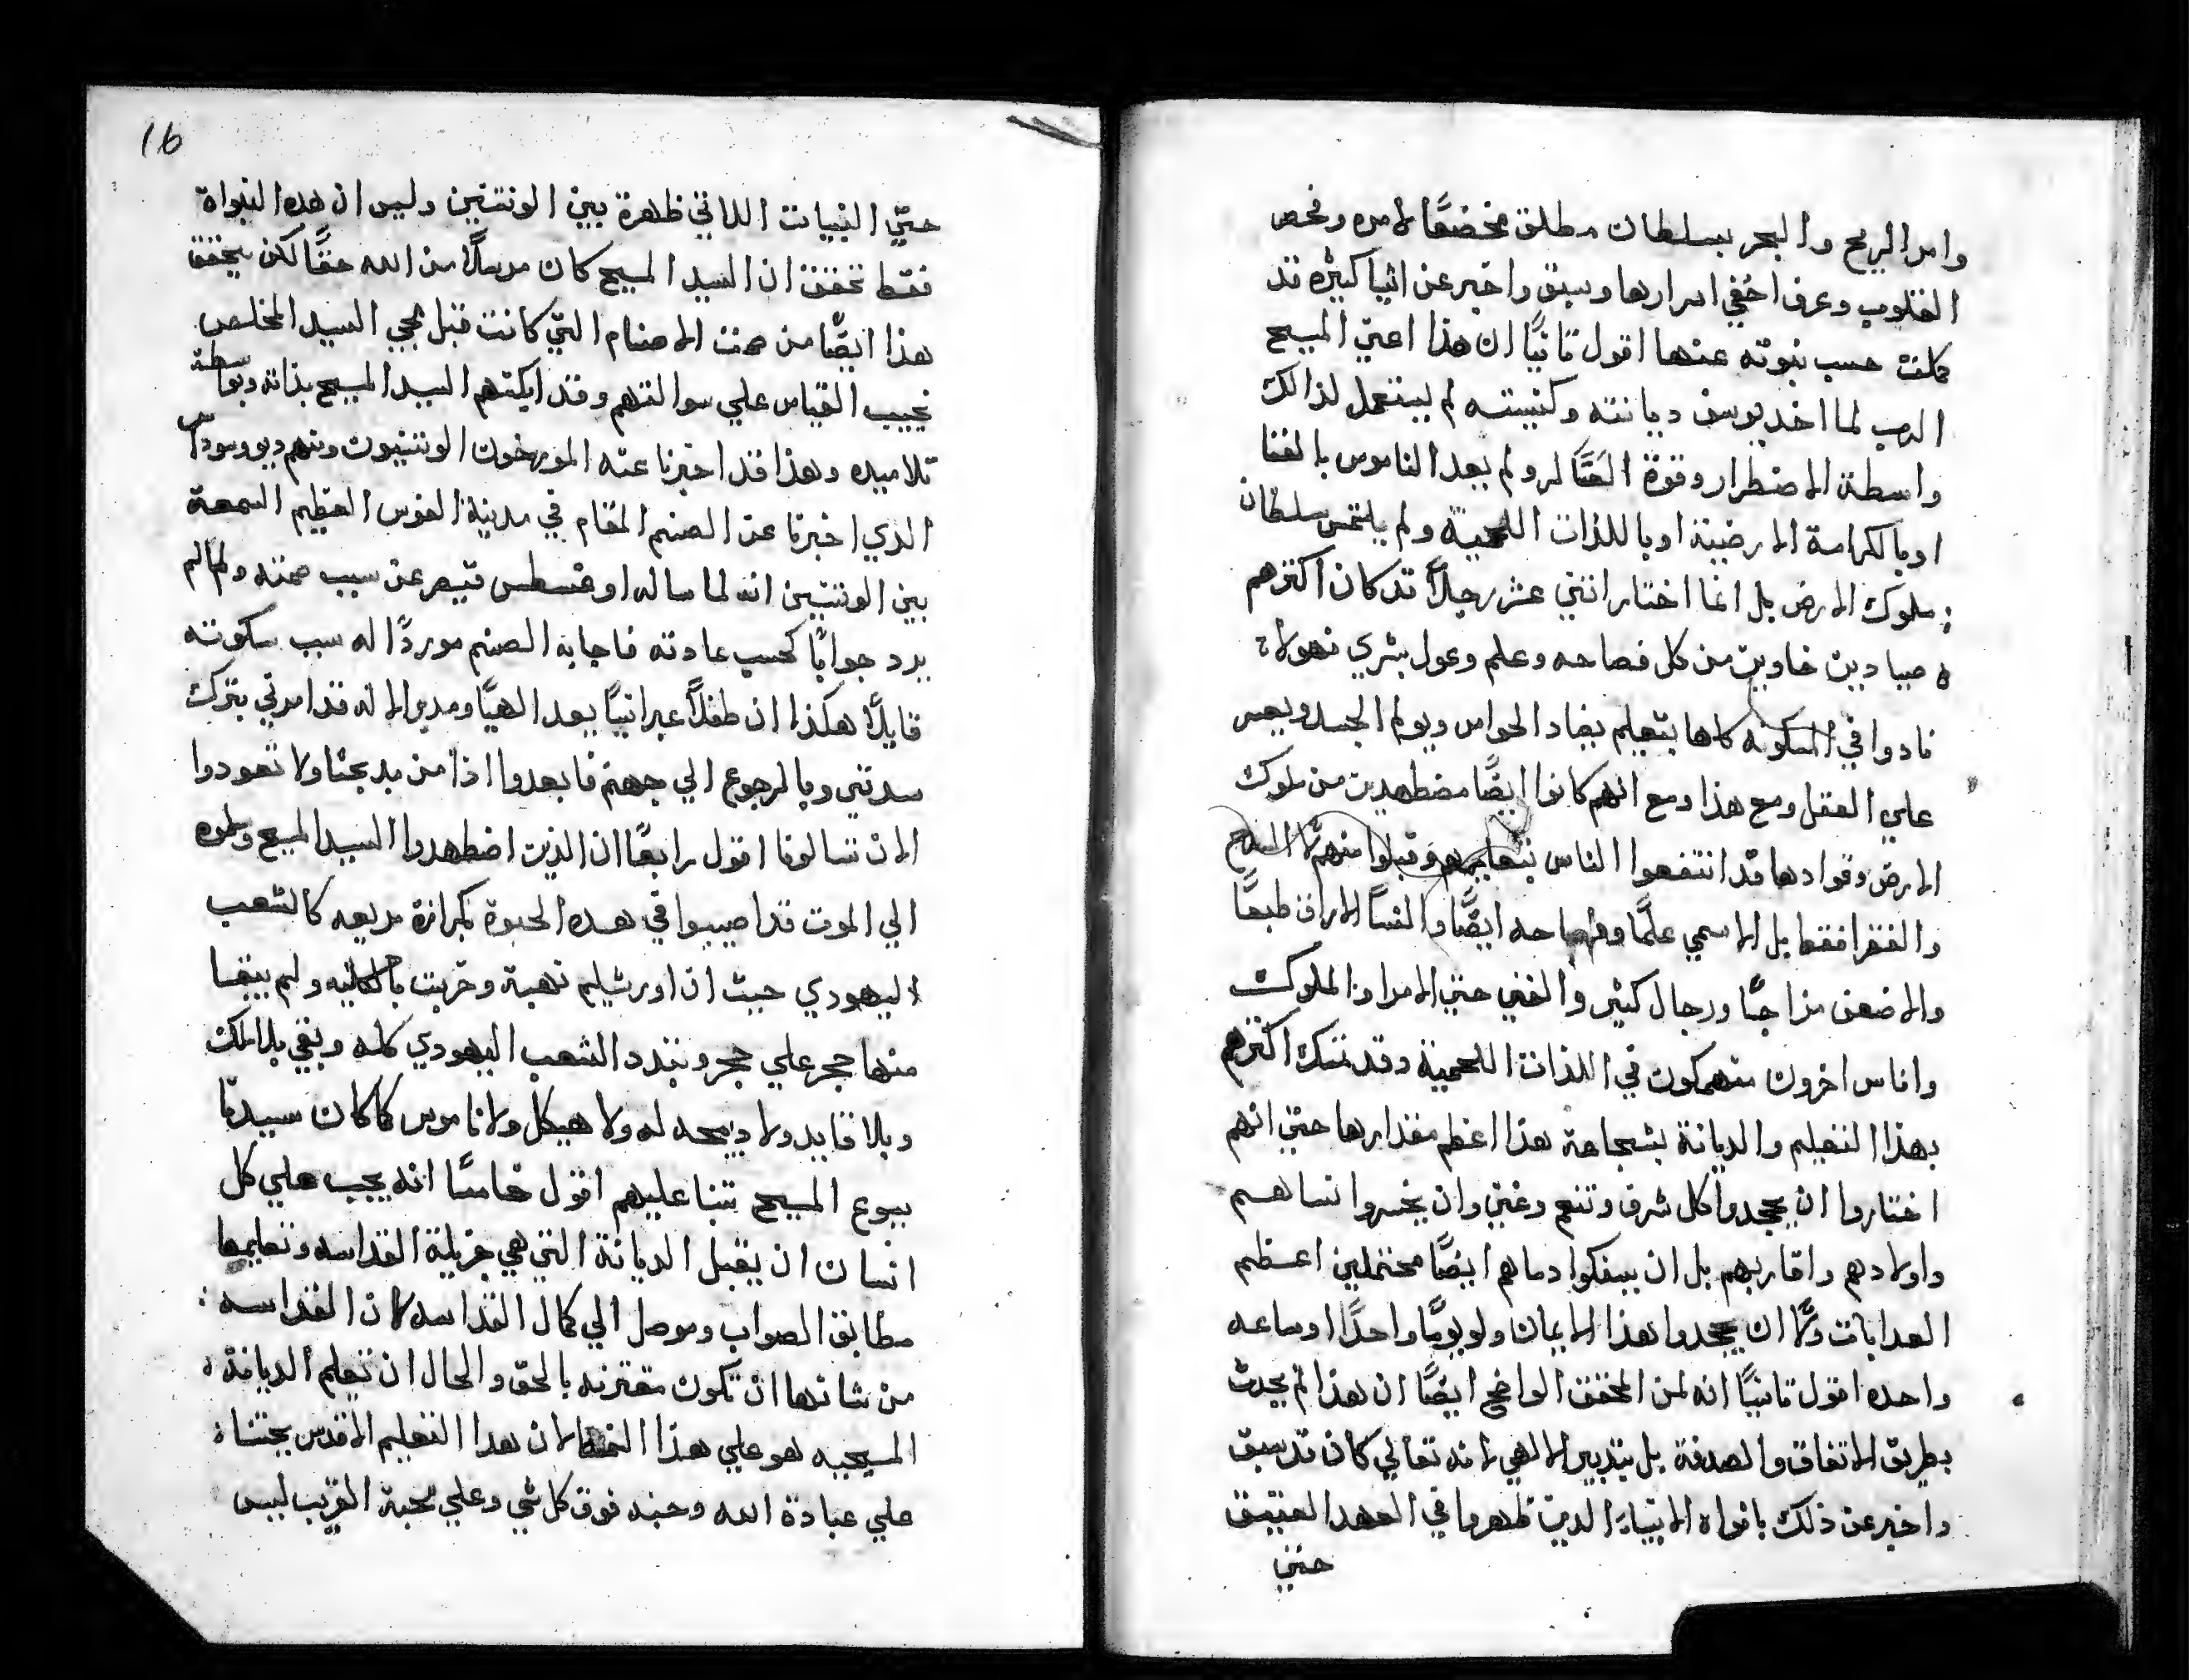 وامر الريح والبحر بسلطان مطلق مخضعًا لامره وفحص
القلوب وعرف اخفي اسرارها وسبق واخبر عن اشيا كثيره قد
كملت حسب نبوته عنها اقول ثانيًا ان هذا اعني المسيح
الرب لما اخذ يوسس ديانته وكنيسته لم يستعمل لذالك
واسطة الاضطرار وقوة العساكر ولم يعد الناموس بالغنا
او بالكرامة الارضية او باللذات اللحمية ولم يلتمس سلطان
ملوك الارض بل انما اختار اثني عشر رجلًا قد كان اكثرهم
صيادين خاوين من كل فصاحه وعلم وعول بشري فهولاء
نادوا في المسكونه كلها بتعليم يضاد الحواس ويولم الجسد ويعسر
علي العقل ومع هذا ومع انهم كانوا ايضًا مضطهدين من ملوك
الارض وقوادها قد انتفعوا الناس بتعليمهم وقبلوا منهم لا السدج
والفقرا فقط بل الاسمي علمًا وفصاحه ايضًا والنسا الاراف طبعًا
والاضعف مزاجًا ورجال كثير والغني حتي الامرا والملوك
واناس اخرون متهمكون في اللذات اللحمية وقد تمسك اكثرهم
بهذا التعليم والديانة بشجاعة هذا اعظم مقدارها حتي انهم
اختاروا ان يجحدوا كل شرف وتنعم وغني وان يخسروا نساهم
واولادهم واقاربهم بل ان يسفكوا دماهم ايضًا محتملين اعظم
العدابات ولا ان يجحدوا هذا الايمان ولو يومًا واحدًا او ساعه
واحده اقول ثانيًا انه لمن المحقق الواضح ايضًا ان هذا لم يحدث
بطريق الاتفاق والصدفة بل بتدبير الاهي لانه تعالي كان قد سبق
واخبر عن ذلك بافواه الانبياء الدين ظهروا في العهد العتيق
حتي
16
حتي النبيات اللاتي ظهرة بين الوتنيين وليس ان هده النبواة
فقط تحقق ان السيد المسيح كان مرسلًا من الله حقًا لكن يحقق
هذا ايضًا من صمت الاصنام التي كانت قبل مجي السيد المخلص
تجيب القياس علي سوالتهم وقد ابكتهم السيد المسيح بذاته وبواسطة
تلاميده وهذا قد اخبرنا عنه المورخون الوتنيون ومنهم ديووسوداس
الدي اخبرنا عن الصنم المقام في مدينة الفوس العظيم السمعة
بين الوتنيين انه لما ساله اوغسطس قيصر عن سبب صمته ولما لم
يرد جوابًا كحسب عادته فاجابه الصنم موردًا له سبب سكوته
قايلًا هكذا ان طفلًا عبرانيًا يعد الهيًا ومدبر الاله قد امرني بترك
سدتي وبالرجوع الي جهنم فابعدوا اذا من مدبحنا ولا تعودوا
الان تسالونا اقول رابعًا ان الذين اضطهدوا السيد المسيح وسلموه
الي الموت قد اصيبوا في هده الحيوة بمرازة مريعه كالشعب
اليهودي حيث ان اورشليم نهبة وخربت بالكليه ولم يبقا
منها حجر علي حجر وتبدد الشعب اليهودي كله وبقي بلا ملك
وبلا قايد ولا دبيحه له ولا هيكل ولا ناموس كما كان سيدنا
يسوع المسيح تنبا عليهم اقول خامسًا انه يجب علي كل
انسان ان يقبل الديانة التي هي جزيلة القداسه وتعليمها
مطابق الصواب وموصل الي كمال القداسه لان القداسه
من شانها ان تكون مقترنه بالحق والحال ان تعلم الديانة
المسيحيه هو علي هذا النمط لان هدا التعليم الاقدس يحتنا
علي عبادة الله وحبه فوق كل شي وعلي محبة القريب ليس